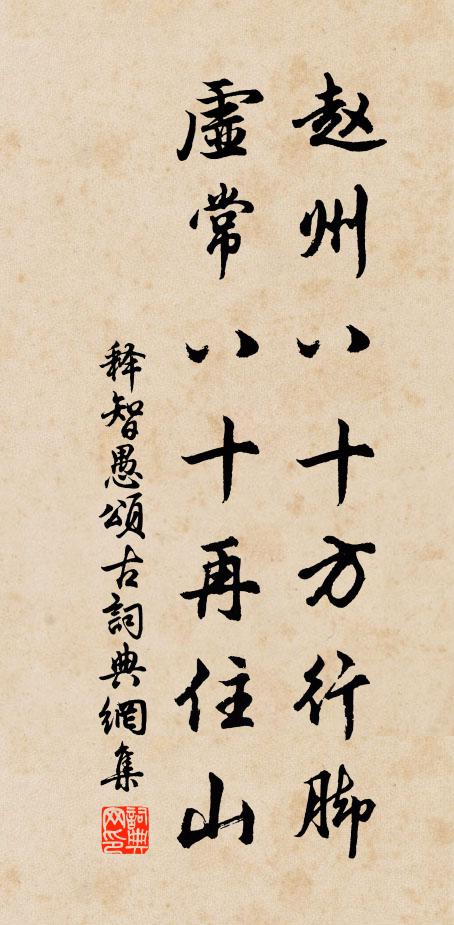 赵州八十方行脚
虚常八十再住山
释智愚頌古詞典網集
詞典网印